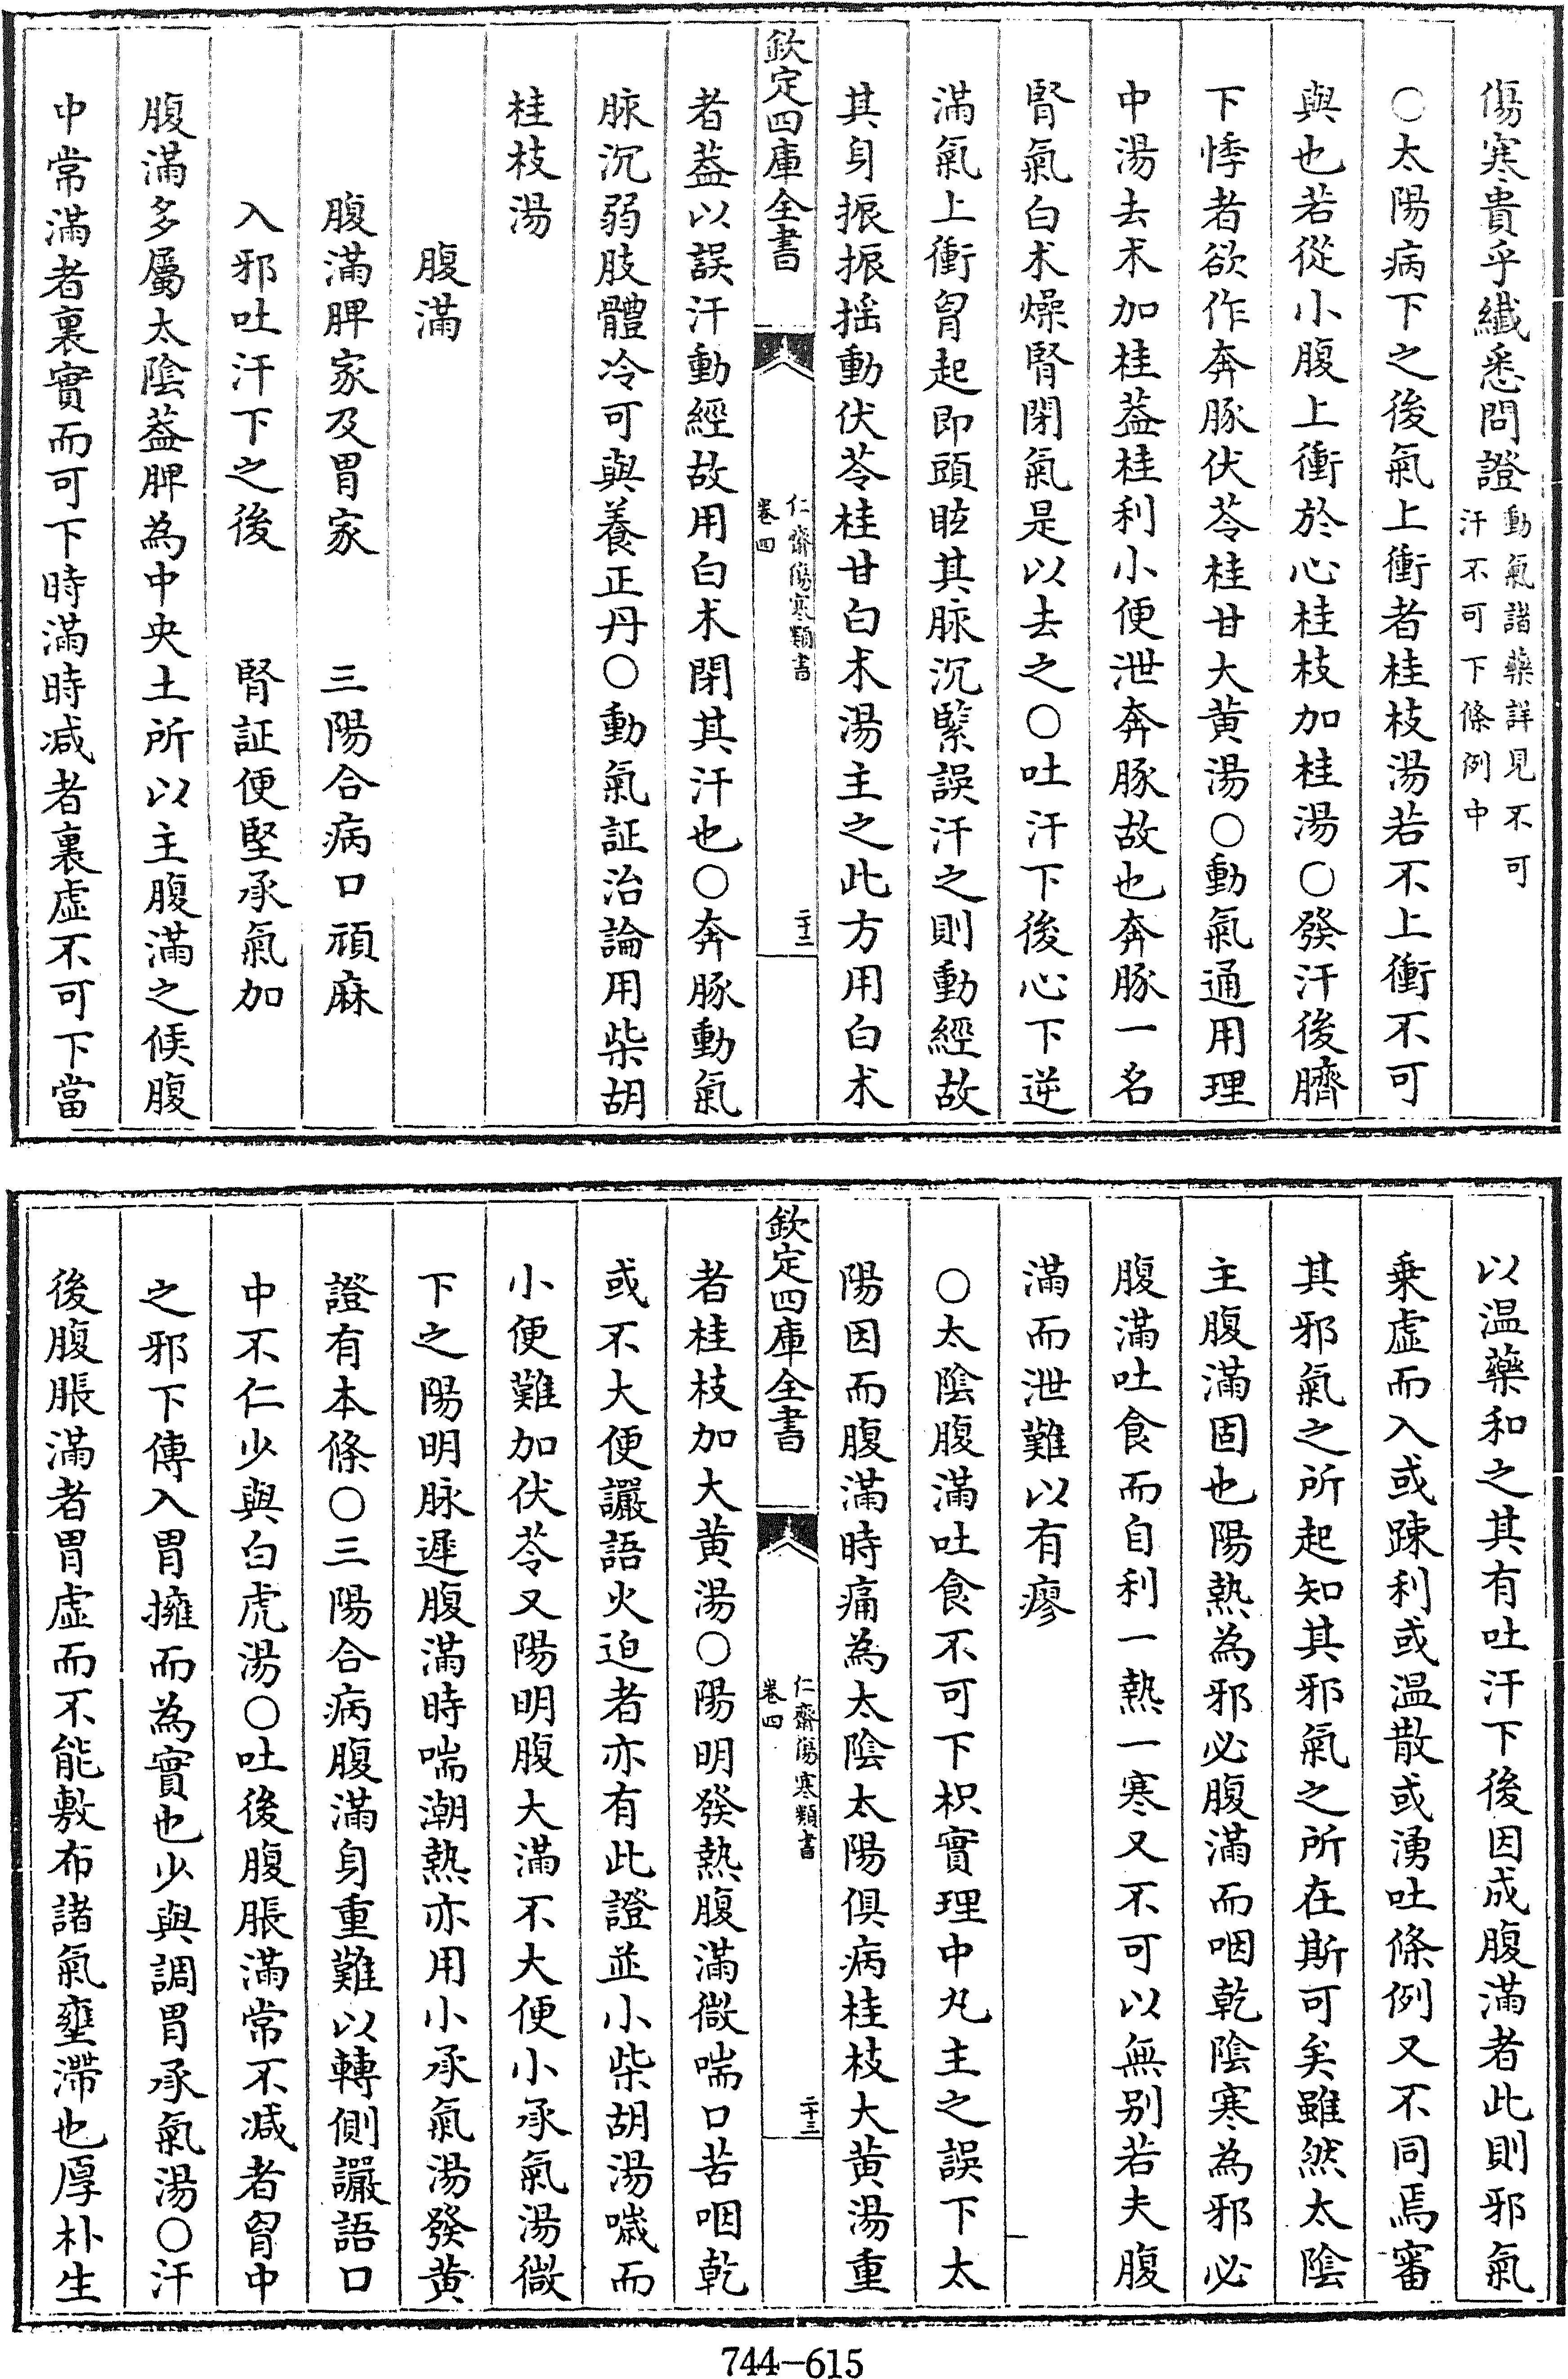 傷寒貴乎纎悉問證動氣諸藥詳見不可汗不可下條例中
○太陽病下之後氣上衝者桂枝湯若不上衝不可
與也若從小腹上衝於心桂枝加桂湯○發汗後臍
下悸者欲作奔豚伏苓桂甘大黄湯○動氣通用理
中湯去术加桂葢桂利小便泄奔豚故也奔豚一名
腎氣白术燥腎閉氣是以去之○吐汗下後心下逆
滿氣上衝胷起即頭眩其脉沉緊誤汗之則動經故
其身振振揺動伏苓桂甘白术湯主之此方用白术
欽定四庫全書
仁齋傷寒類書
卷四
二十二
者葢以誤汗動經故用白术閉其汗也○奔豚動氣
脉沉弱肢體冷可與養正丹○動氣証治論用柴胡
桂枝湯
腹滿
腹滿脾家及胃家 三陽合病口頑麻
入邪吐汗下之後 腎証便堅承氣加
腹滿多屬太陰葢脾為中央土所以主腹滿之候腹
中常滿者裏實而可下時滿時减者裏虚不可下當
以温藥和之其有吐汗下後因成腹滿者此則邪氣
乗虚而入或踈利或温散或湧吐條例又不同焉審
其邪氣之所起知其邪氣之所在斯可矣雖然太陰
主腹滿固也陽熱為邪必腹滿而咽乾陰寒為邪必
腹滿吐食而自利一熱一寒又不可以無别若夫腹
滿而泄難以有瘳
○太陰腹滿吐食不可下枳實理中丸主之誤下太
陽因而腹滿時痛為太陰太陽俱病桂枝大黄湯重
欽定四庫全書
仁齋傷寒類書
卷四
二十三
者桂枝加大黄湯○陽明發熱腹滿微喘口苦咽乾
或不大便讝語火迫者亦有此證並小柴胡湯噦而
小便難加伏苓又陽明腹大滿不大便小承氣湯微
下之陽明脉遲腹滿時喘潮熱亦用小承氣湯發黄
證有本條○三陽合病腹滿身重難以轉側讝語口
中不仁少與白虎湯○吐後腹脹滿常不减者胷中
之邪下傳入胃擁而為實也少與調胃承氣湯○汗
後腹脹滿者胃虚而不能敷布諸氣壅滯也厚朴生
744-615